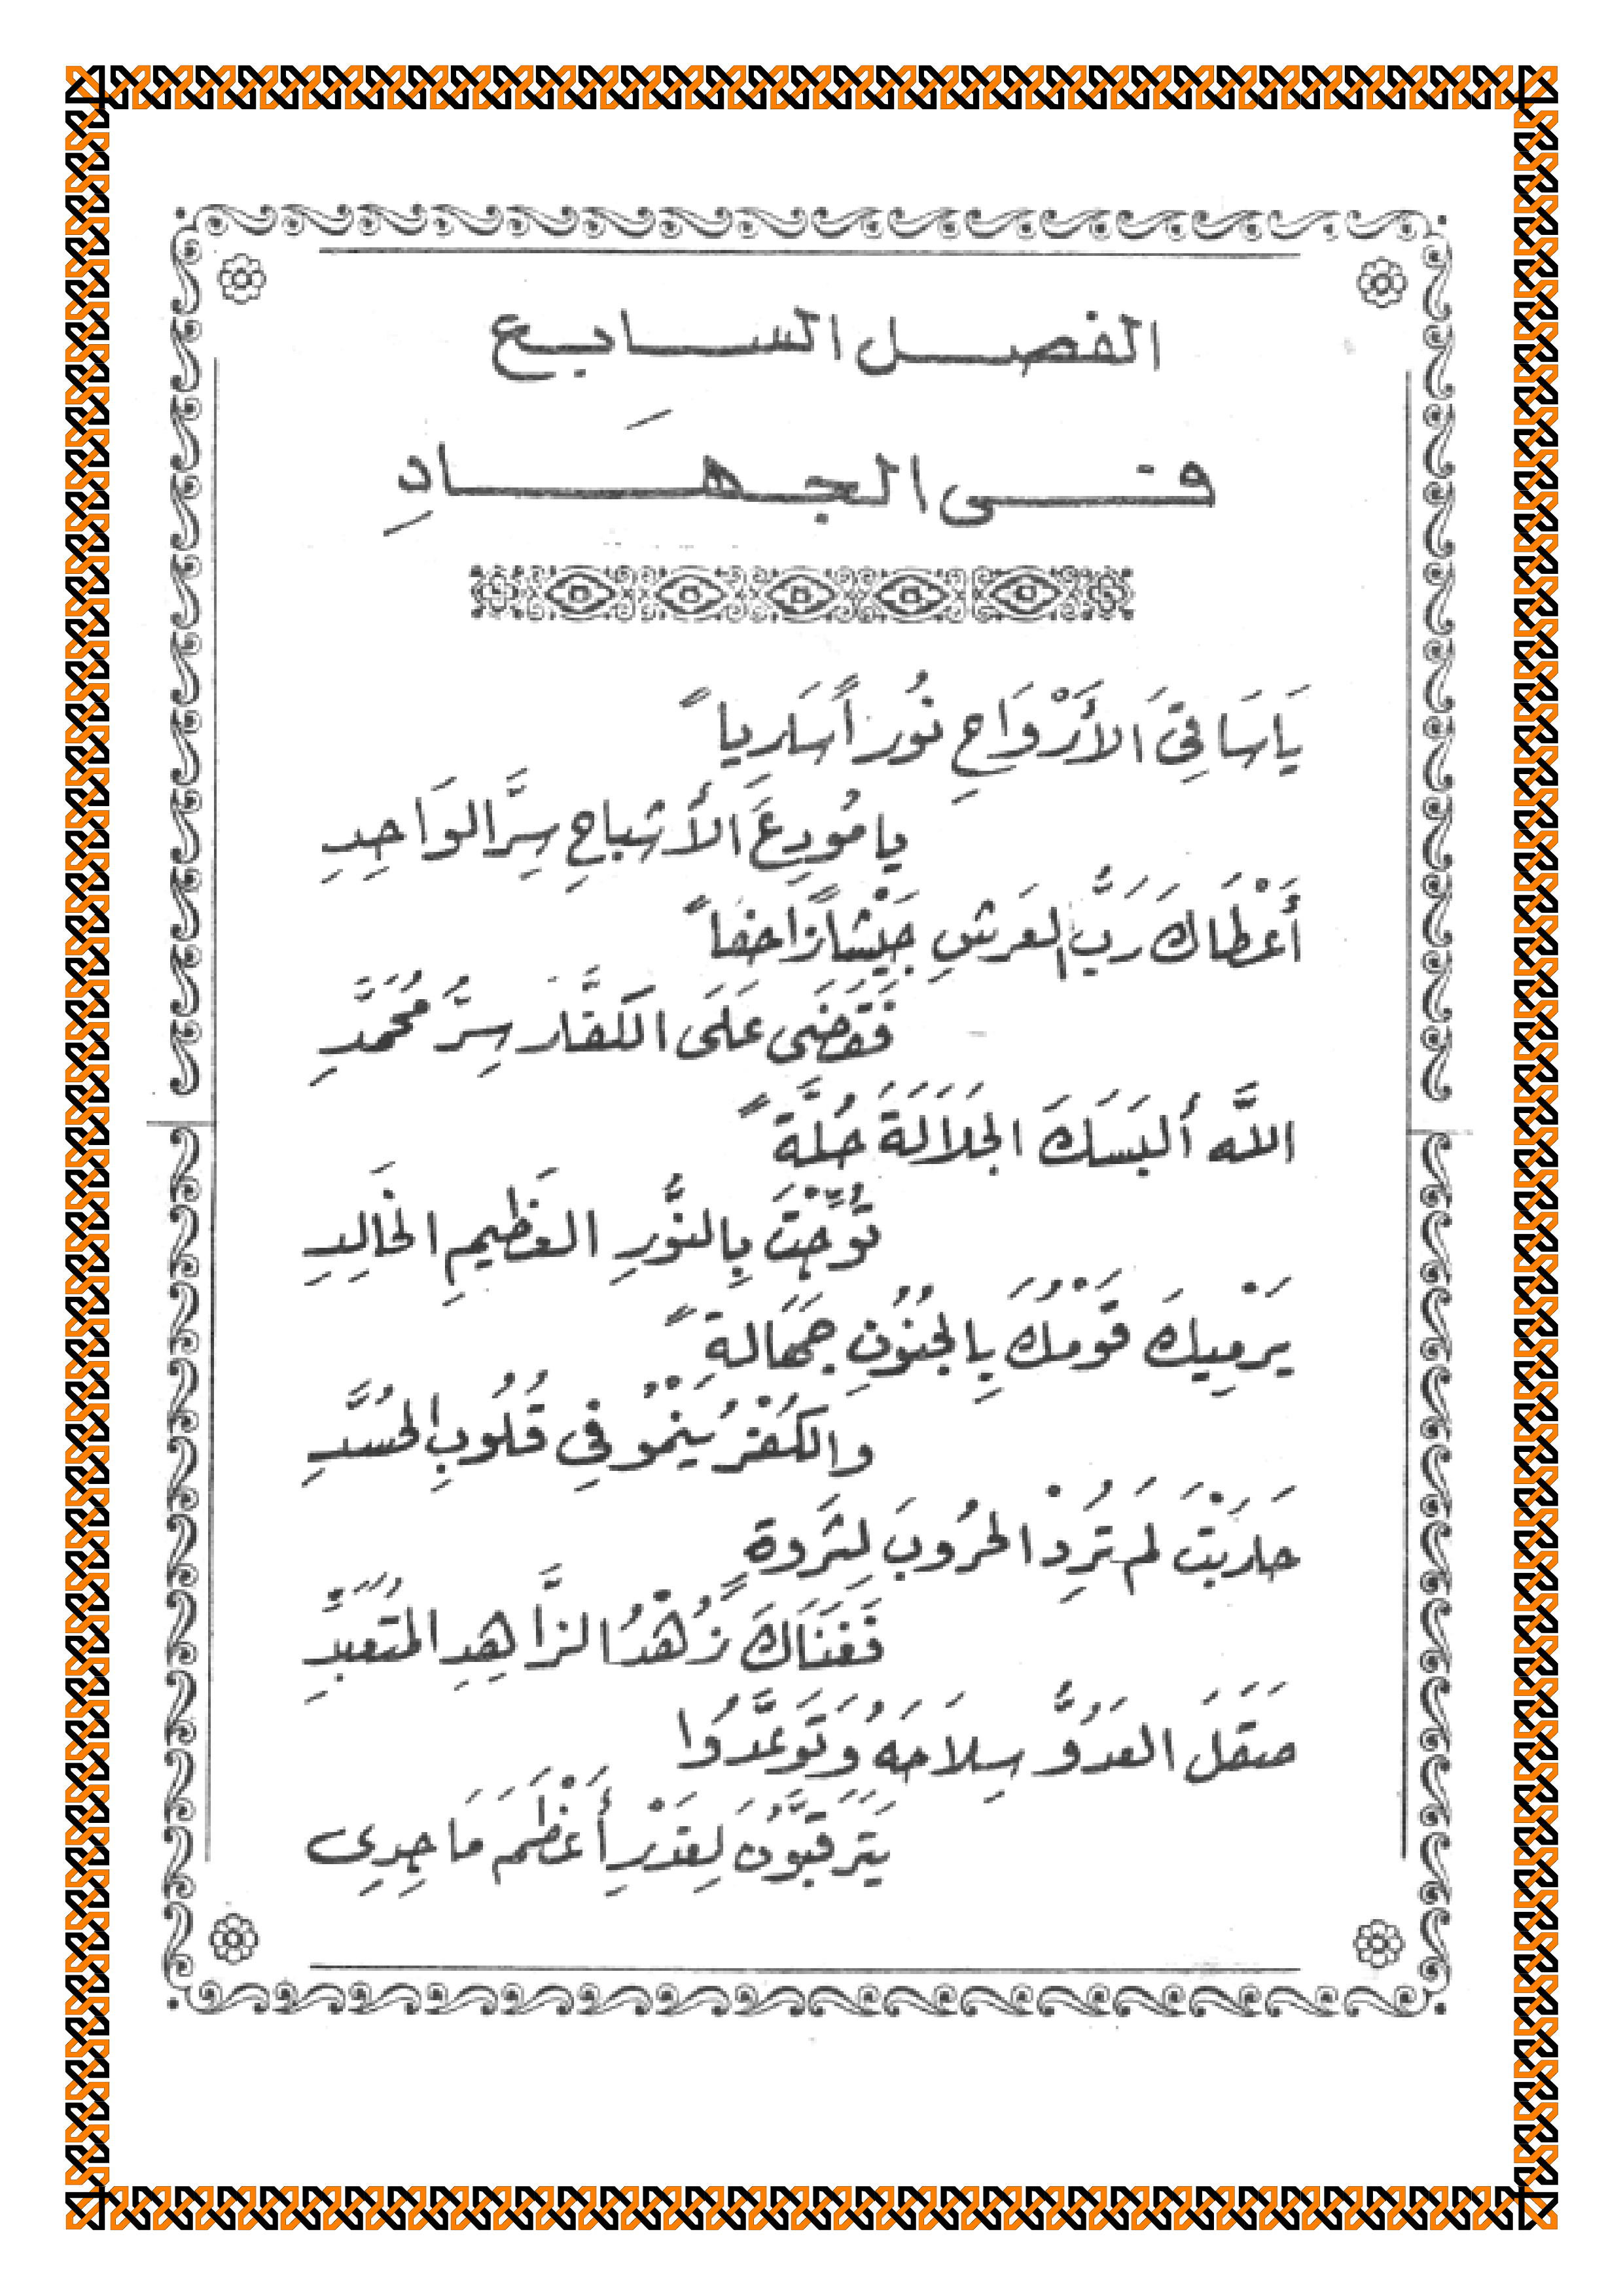 الفصل السابع
فتى الجهَادِ
يَاسَاقِىَ الأَرْوَاحِ نُوراً سَارياً
يا مُودِعَ الأَشباحِ سِرَّ الوَاحِدِ
أَعْطَاكَ رَبُّ العَرشِ جَيْشاً زَاحفاً
فَقَضَى عَلَى الكفَّار سِرُّ مُحَمَّدِ
اللَّه ألبَسَكَ الجَلاَلَةَ حُلَّةً
تُوِّجْتَ بِالنُّورِ العَظِيمِ الخَالِدِ
يَرْمِيكَ قَوْمُكَ بِالجُنُونِ جَهَالةً
والكُفْرُ يَنْمُو فِي قُلُوبِ الحُسَّدِ
حَارَبْتَ لَم تُرِدْ الحُروبَ لِثَروةٍ
فَغِنَاكَ زُهْدُ الزَّاهِدِ المُتَعَبِّدِ
صَقَلَ العَدُوُّ سِلاَحَهُ وَتَوَعَّدُوا
يَتَرَقَّبُونَ لِغَدْرِ أَعْظَمَ مَاجِدِى